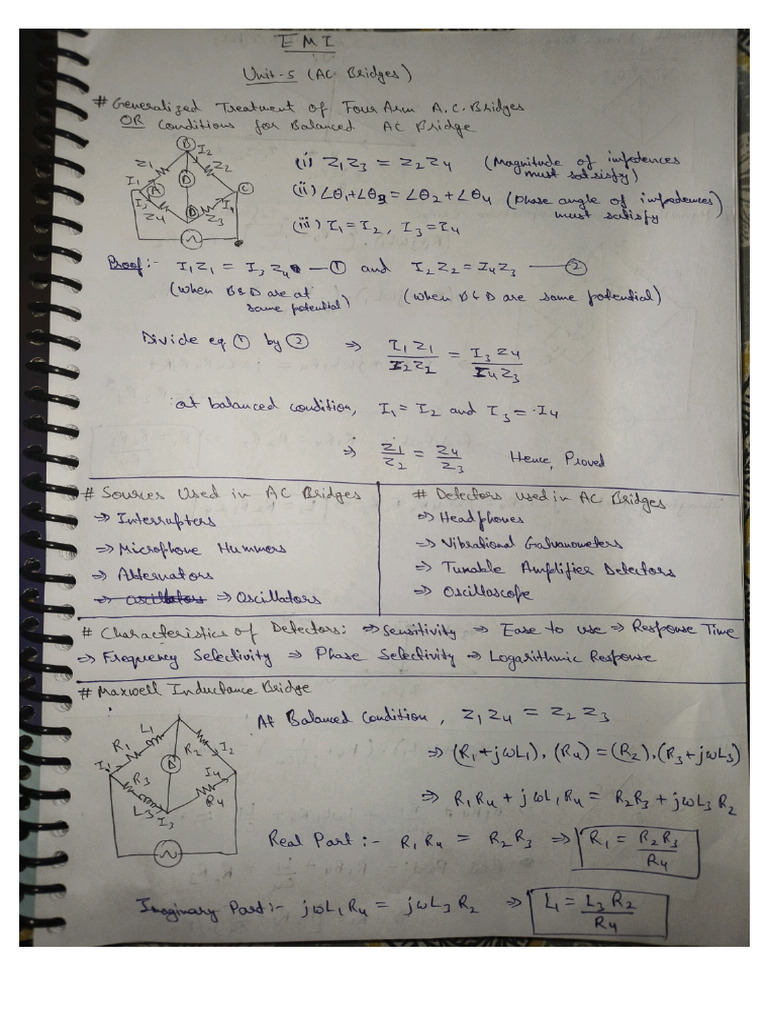 EMI
Unit-5 (AC Bridges)
# Generalized Treatment of Four Arm A.C. Bridges
OR Conditions for Balanced AC Bridge
B
Z1 I2 Z2
I1 A D C
I3 Z4 D Z3 I4
(i) Z1Z3 = Z2Z4 (Magnitude of impedences
must satisisfy)
(ii) ∠θ1+∠θ3 = ∠θ2+∠θ4 (Phase angle of impedences)
must satisfy
(iii) I1 = I2 , I3 = I4
Proof:- I1Z1 = I3Z4 — ① and I2Z2 = I4Z3 — ②
(when B & D are at (when B & D are same potential)
same potential)
Divide eq ① by ② ⇒ I1Z1/I2Z2 = I3Z4/I4Z3
at balanced condition, I1 = I2 and I3 = I4
⇒ Z1/Z2 = Z4/Z3 Hence, Proved
# Sources Used in AC Bridges
⇒ Interrupters
⇒ Microphone Hummers
⇒ Alternators
⇒ Oscillators ⇒ Oscillators
# Detectors used in AC Bridges
⇒ Headphones
⇒ Vibrational Galvanometers
⇒ Tunable Amplifier Detectors
⇒ Oscilloscope
# Characteristics of Detectors: ⇒ Sensitivity ⇒ Ease to use ⇒ Response Time
⇒ Frequency Selectivity ⇒ Phase Selectivity ⇒ Logarithmic Response
# Maxwell Inductance Bridge
R1 L1 R2 I2
I1 R3 D I4
L3 I3 R4
At Balanced Condition, Z1Z4 = Z2Z3
⇒ (R1+jωL1).(R4) = (R2).(R3+jωL3)
⇒ R1R4 + jωL1R4 = R2R3 + jωL3R2
Real Part:- R1R4 = R2R3 ⇒ R1 = R2R3/R4
Imaginary Part:- jωL1R4 = jωL3R2 ⇒ L1 = L3R2/R4